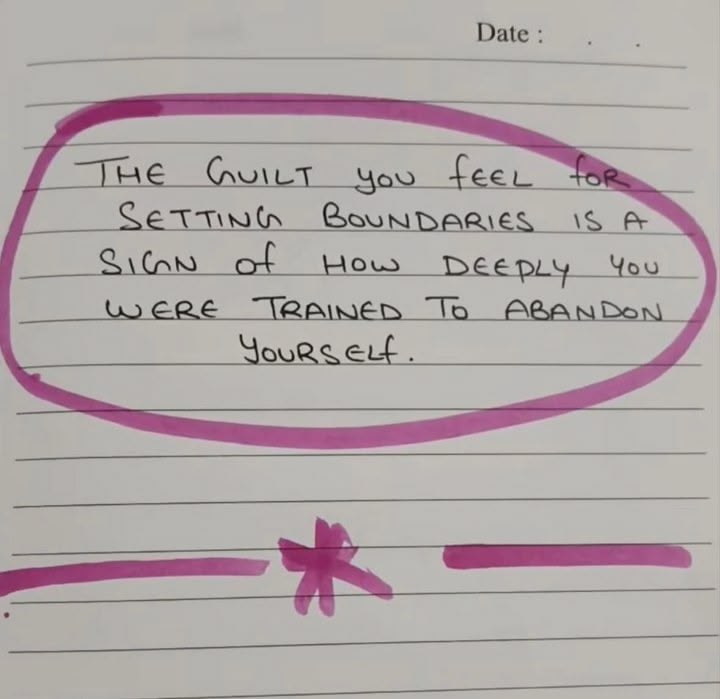 Date : . .
THE GUILT you fEEL foR
SETTING BOUNDARIES IS A
SIGN of HOW DEEPLY YOU
WERE TRAINED TO ABANDON
YOURSELf.